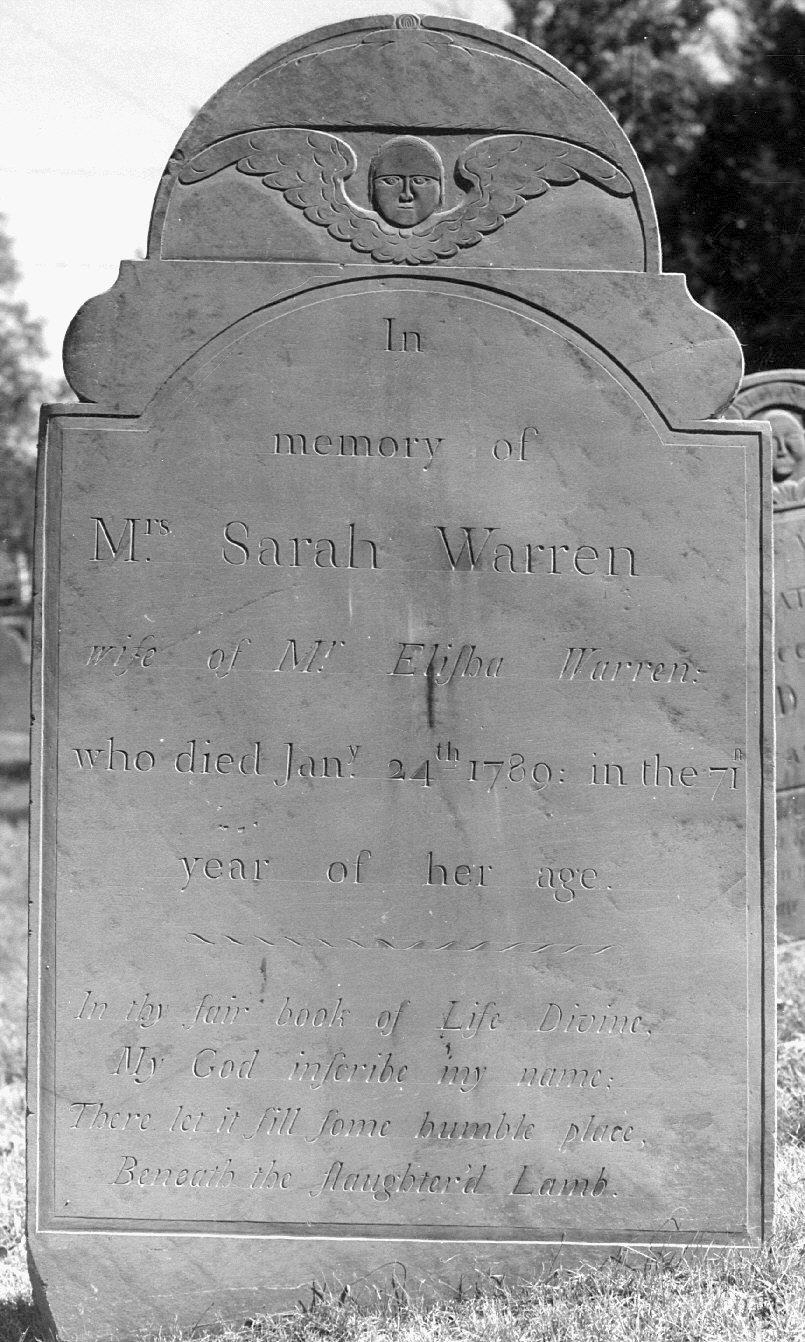 In
memory of
Mrs. Sarah Warren
wife of Mr. Eliſha Warren:
who died Jany. 24th 1789: in the 71st
year of her age.
In thy fair book of Life Divine,
My God inſcribe my name;
There let it fill ſome humble place,
Beneath the ſlaughter'd Lamb.